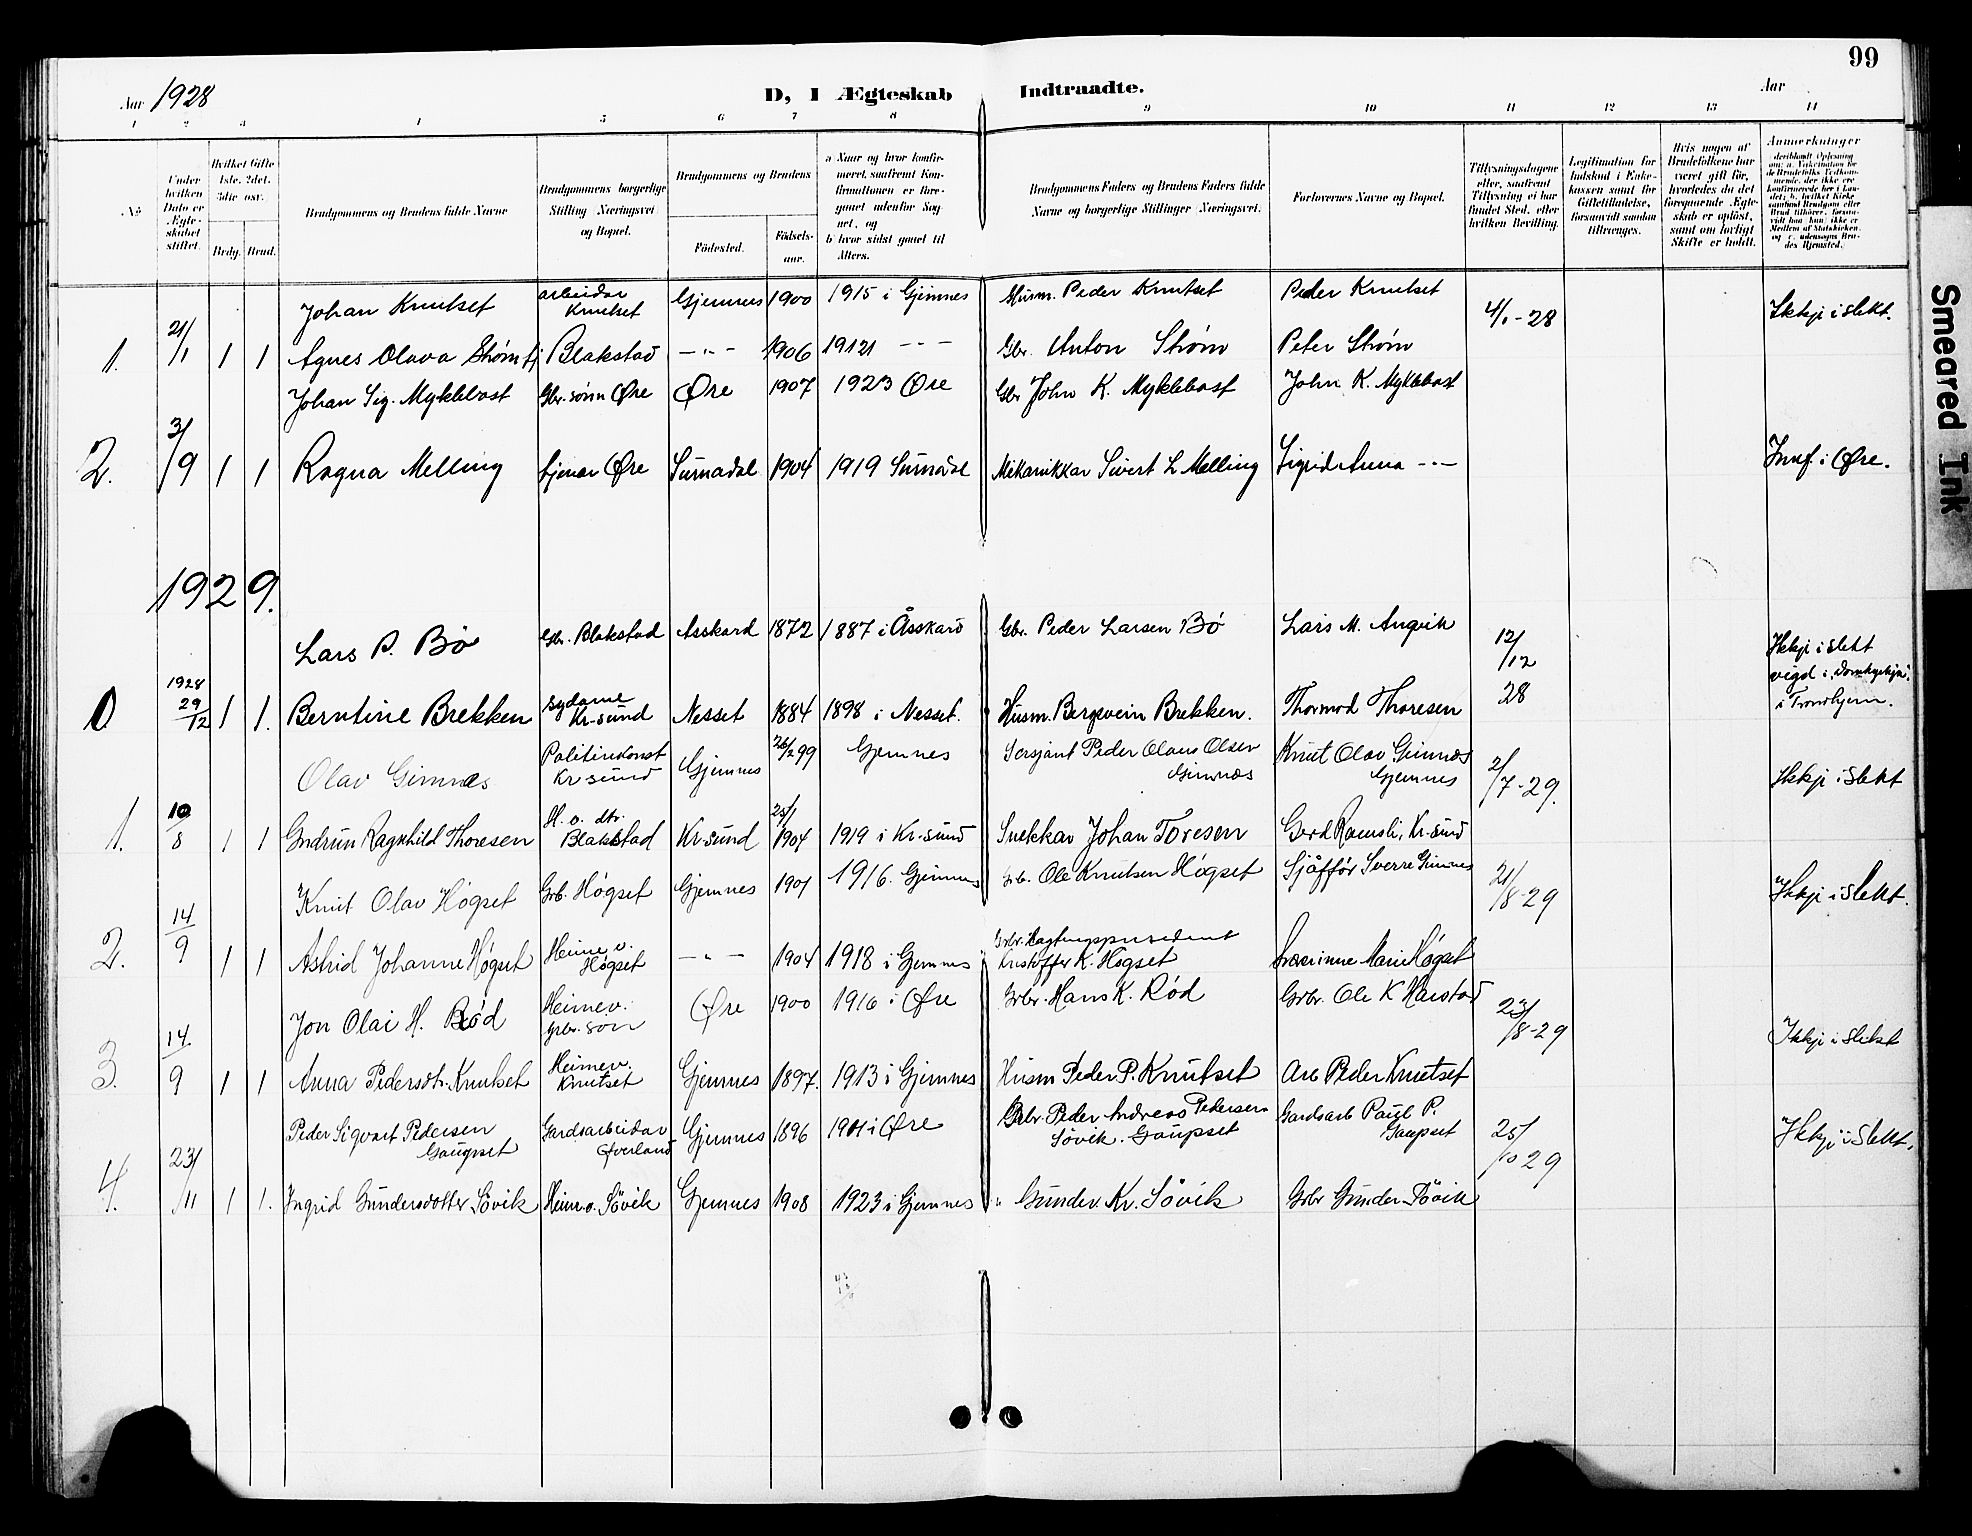 99
Aar 1928
D, I Ægteskab Indtraadte.
Aar
1 2 3 4 5 6 7 8 9 10 11 12 13 14
No.
Under hvilken Dato er Ægteskabet stiftet.
Hvilket Gifte 1ste, 2det, 3die osv.
Brdg. Brud.
Brudgommens og Brudens fulde Navne
Brudgommens borgerlige Stilling (Næringsvei) og Bopæl.
Brudgommens og Brudens
Fødested. Fødselsaar.
a Naar og hvor konfirmeret, saafremt Konfirmationen er foregaaet udenfor Sognet, og
b hvor sidst gaaet til Alters.
Brudgommens Faders og Brudens Faders fulde Navne og borgerlige Stillinger (Næringsvei).
Forlovernes Navne og Bopæl.
Tillysningsdagene eller, saafremt Tillysning ei har fundet Sted, efter hvilken Bevilling.
Legitimation for Indskud i Enkekassen samt for Giftetilladelse, forsaavidt saadan tiltrænges.
Hvis nogen af Brudefolkene har været gift før, hvorledes da det foregaaende Ægteskab er opløst, samt om lovligt Skifte er holdt.
Anmærkninger
Johan Knutset arbeidar Knutset Gjemnes 1900 1915 i Gjemnes Husm. Peder Knutset Peder Knutset 4/1-28 Ikkje i slekt.
1. 21/1 1 1 Agnes Olava Strøm Blakstad - " - 1906 1921 - - - Gbr. Anton Strøm Peter Strøm
Johan Sig. Myklebost Gbr. sønn Øre Øre 1907 1923 Øre Gbr John K. Myklebost John K. Myklebost
2. 3/9 1 1 Ragna Melling Øre Surnadal 1904 1919 Surnadal Mekanikkar Sivert L Melling Sigrid Anna - " - Innf. i Øre.
1929.
Lars P. Bø Gbr. Blakstad Asskard 1872 1887 i Åsskard Gbr. Peder Larsen Bø Lars M. Angvik 12/12 28 Ikkje i slekt
vigd i "Domkyrkja" i Trondhjem.
0 1928 29/12 1 1. Berntine Brekken sydame Kr-sund Nesset 1884 1898 i Nesset. Husm. Bergsvein Brekken. Thormod Thoresen
Olav Gimnæs Politikonst Kr sund Gjemnes 26/2 99 Gjemnes Sersjant Peder Olaus Olsen Gimnæs Knut Olav Gimnæs Gjemnes 2/7-29. Ikkje i slekt
1. 10/8 1 1 Gudrun Ragnhild Thoresen H. o. dtr. Blakstad Kr-sund 25/1 1904 1919 i Kr-sund Snekkar Johan Toresen Gerd Ramsli, Kr-sund
Knut Olav Høgset Grb. Høgset Gjemnes 1901 1916. Gjemnes Grb. Ole Knutsen Høgset Sjåffør Sverre Gimnes 21/8-29 Ikkje i slekt.
2. 14/9 1 1 Astrid Johanne Høgset Heime v. Høgset - " - 1904 1918 i Gjemnes Kristoffer K. Høgset Lærerinne Marie Høgset
Jon Olai H. Rød Heimev. grbr. søn Øre 1900 1916 i Øre Grbr. Hans K. Rød Grbr. Ole K Harstad 23/8-29 Ikkje i slekt
3. 14/9 1 1 Anna Pedersdtr. Knutset Heimev. Knutset Gjemnes 1897. 1913 i Gjemnes Husm Peder P. Knutset Arb Peder Knutset
Peder Siqvart Pedersen Gaupset Gardsarbeidar Øverland Gjemnes 1896 1911 i Øre Grbr. Peder Andreas Pedersen Søvik. Gaupset Gardsarb Paul P. Gaupset 25/10 29 Ikkje i slekt.
4. 23/11 1 1. Ingrid Gundersdotter Søvik Heim v. Søvik Gjemnes 1908 1923 i Gjemnes " Gunder Kr. Søvik Grbr Gunder Søvik
Smeared Ink